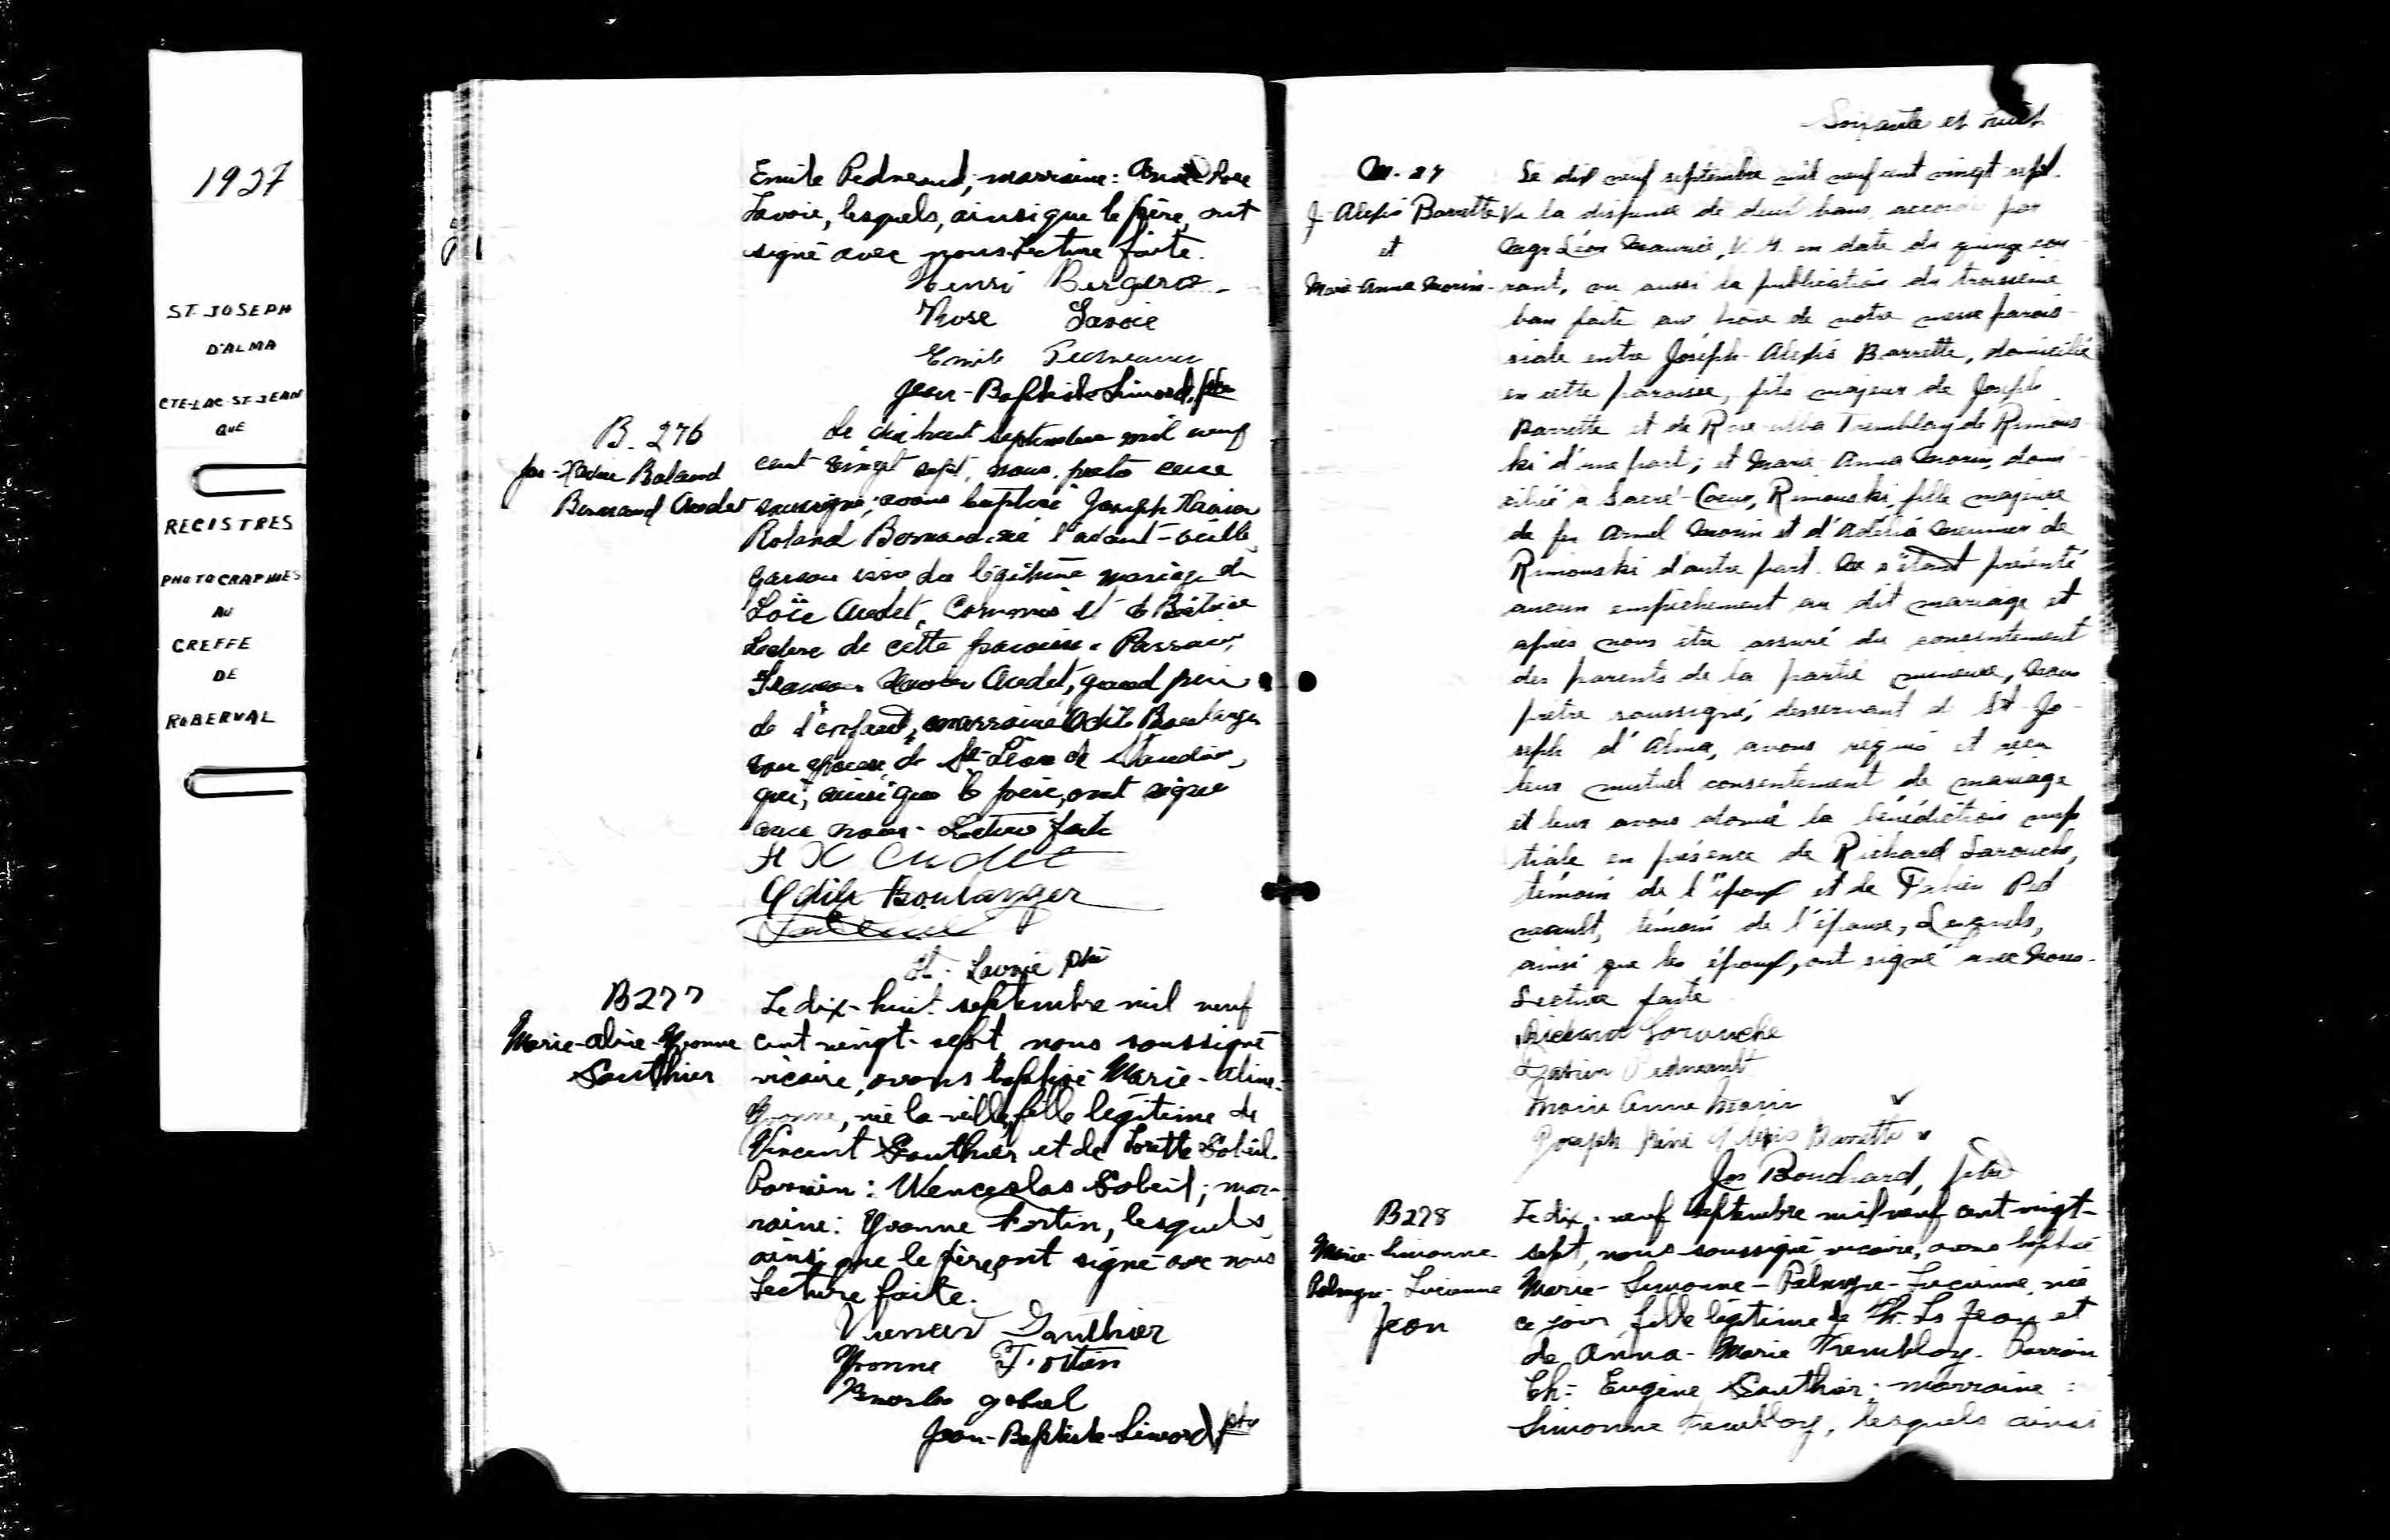 1927
ST-JOSEPH
D'ALMA
CTE-LAC-ST-JEAN
QUE
REGISTRES
PHOTOGRAPHIES
AU
GREFFE
DE
ROBERVAL
Emile Pedneaud; marraine: Rose
Lavoie, lesquels, ainsi que le père, ont
signé avec nous. Lecture faite.
Henri Bergeron
Rose Lavoie
Emile
Jean-Baptiste Simard, ptre
B. 276
Jos-Xavier Roland
Bernard Audet
Le dix huit septembre mil neuf
cent vingt sept, nous, curé
soussigné, avons baptisé Joseph Xavier
Roland Bernard, né l'avant-veille,
garçon issu du légitime mariage de
Audet, Commis et de Béatrice
Leclerc de cette paroisse. Parrain,
François Xavier Audet, grand père
de l'enfant, marraine Odile Boulanger
son épouse, de St-Léon de Standon,
qui, ainsi que le père, ont signé
avec nous. Lecture faite
F X Audet
Odile Boulanger
Lavoie ptre
B277
Marie-Aline-Yvonne
Gauthier
Le dix-huit septembre mil neuf
cent vingt-sept, nous soussigné
vicaire, avons baptisé Marie-Aline-
Yvonne, née la veille, fille légitime de
Vincent Gauthier et de Lorette Gobeil.
Parrain: Wenceslas Gobeil; mar-
raine: Yvonne Fortin, lesquels,
ainsi que le père, ont signé avec nous
Lecture faite.
Vincent Gauthier
Yvonne Fortin
gobeil
Jean-Baptiste Simard ptre
Soixante et huit
M. 27
J-Alexis Barrette
et
Marie-Anna Morin
Le dix neuf septembre mil neuf cent vingt sept.
Vu la dispense de deux bans, accordée par
Mgr Léon Maurice, V. G. en date du quinze cou-
rant, vu aussi la publication du troisième
ban faite au prône de notre messe parois-
siale entre Joseph-Alexis Barrette, domicilié
en cette paroisse, fils majeur de Joseph
Barrette et de Rose-Alba Tremblay de Rimous-
ki d'une part; et Marie-Anna Morin, domi-
ciliée à Sacré-Coeur, Rimouski, fille majeure
de feu Morin et d' de
Rimouski d'autre part. Ne s'étant présenté
aucun empêchement au dit mariage et
après nous être assuré du consentement
des parents de la partie mineure, nous
prêtre soussigné, desservant de St-Jo-
seph d'Alma, avons requis et reçu
leur mutuel consentement de mariage
et leur avons donné la bénédiction nup
tiale en présence de Richard Larouche,
témoin de l'époux et de Fabien Ped
neault, témoin de l'épouse, Lesquels,
ainsi que les époux, ont signé avec nous.
Lecture faite
Richard Larouche
Fabien Pedneault
Marie Anne Morin
Joseph René Alexis Barrette
Jos Bouchard, ptre
B278
Marie-Simonne-
Palmyre-Lucienne
Jean
Le dix-neuf septembre mil neuf cent vingt-
sept, nous soussigné vicaire, avons baptisé
Marie-Simonne-Palmyre-Lucienne, née
ce jour, fille légitime de Th. Ls Jean et
de Anna-Marie Tremblay. Parrain
Ch-Eugène Gauthier; marraine:
Simonne Tremblay, lesquels ainsi